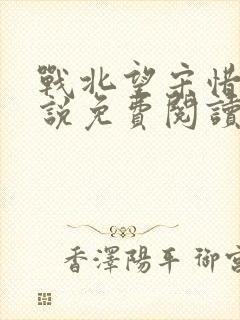 戰北望宋惜
說免費閱讀
香澤陽平 御宮